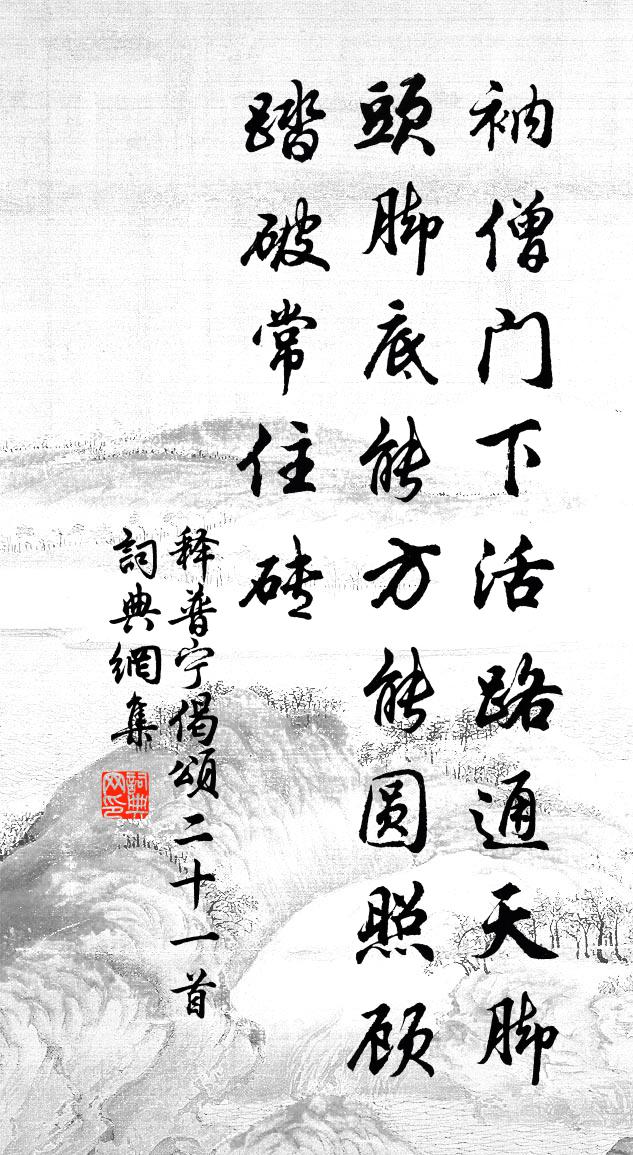 衲僧门下活路通天脚
頭脚底能方能圆照顾
踏破常住砖
释普宁偈颂二十一首
詞典網集
詞典网印